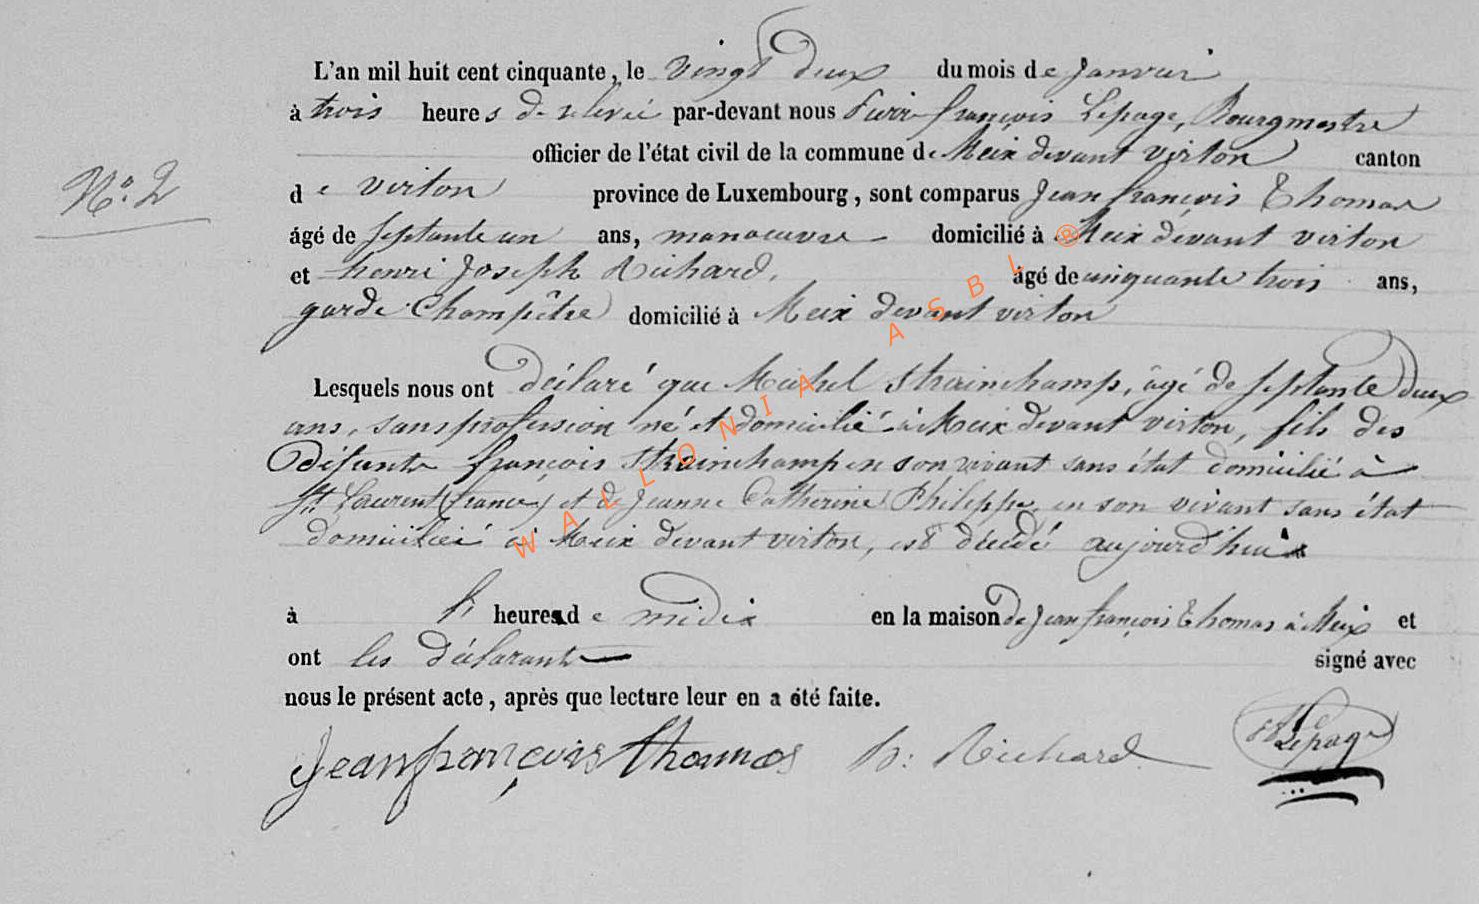 L'an mil huit cent cinquante, le vingt deux du mois de Janvier
à trois heures de relevée par-devant nous Pierre françois Lépage, Bourgmestre
officier de l'état civil de la commune de Meix devant virton canton
N.º 2
de virton province de Luxembourg, sont comparus Jean françois Thomas
âgé de septante un ans, manoeuvre domicilié à Meix devant virton
et henri Joseph Richard, âgé de cinquante trois ans,
garde Champêtre domicilié à Meix devant virton
Lesquels nous ont déclaré que Michel Strainchamp, âgé de septante deux
ans, sans profession né et domicilié à Meix devant virton, fils des
Défunts françois Strainchamp en son vivant sans état domicilié à
St. Laurent (france) et de Jeanne Catherine Philippe, en son vivant sans état
domiciliée à Meix devant virton, est décédé aujourd'hui
à heures de midi en la maison de Jean françois Thomas à Meix et
ont les déclarants signé avec
nous le présent acte, après que lecture leur en a été faite.
Jean françois thomas h: Richard Lepage
WALLONIA ASBL ®